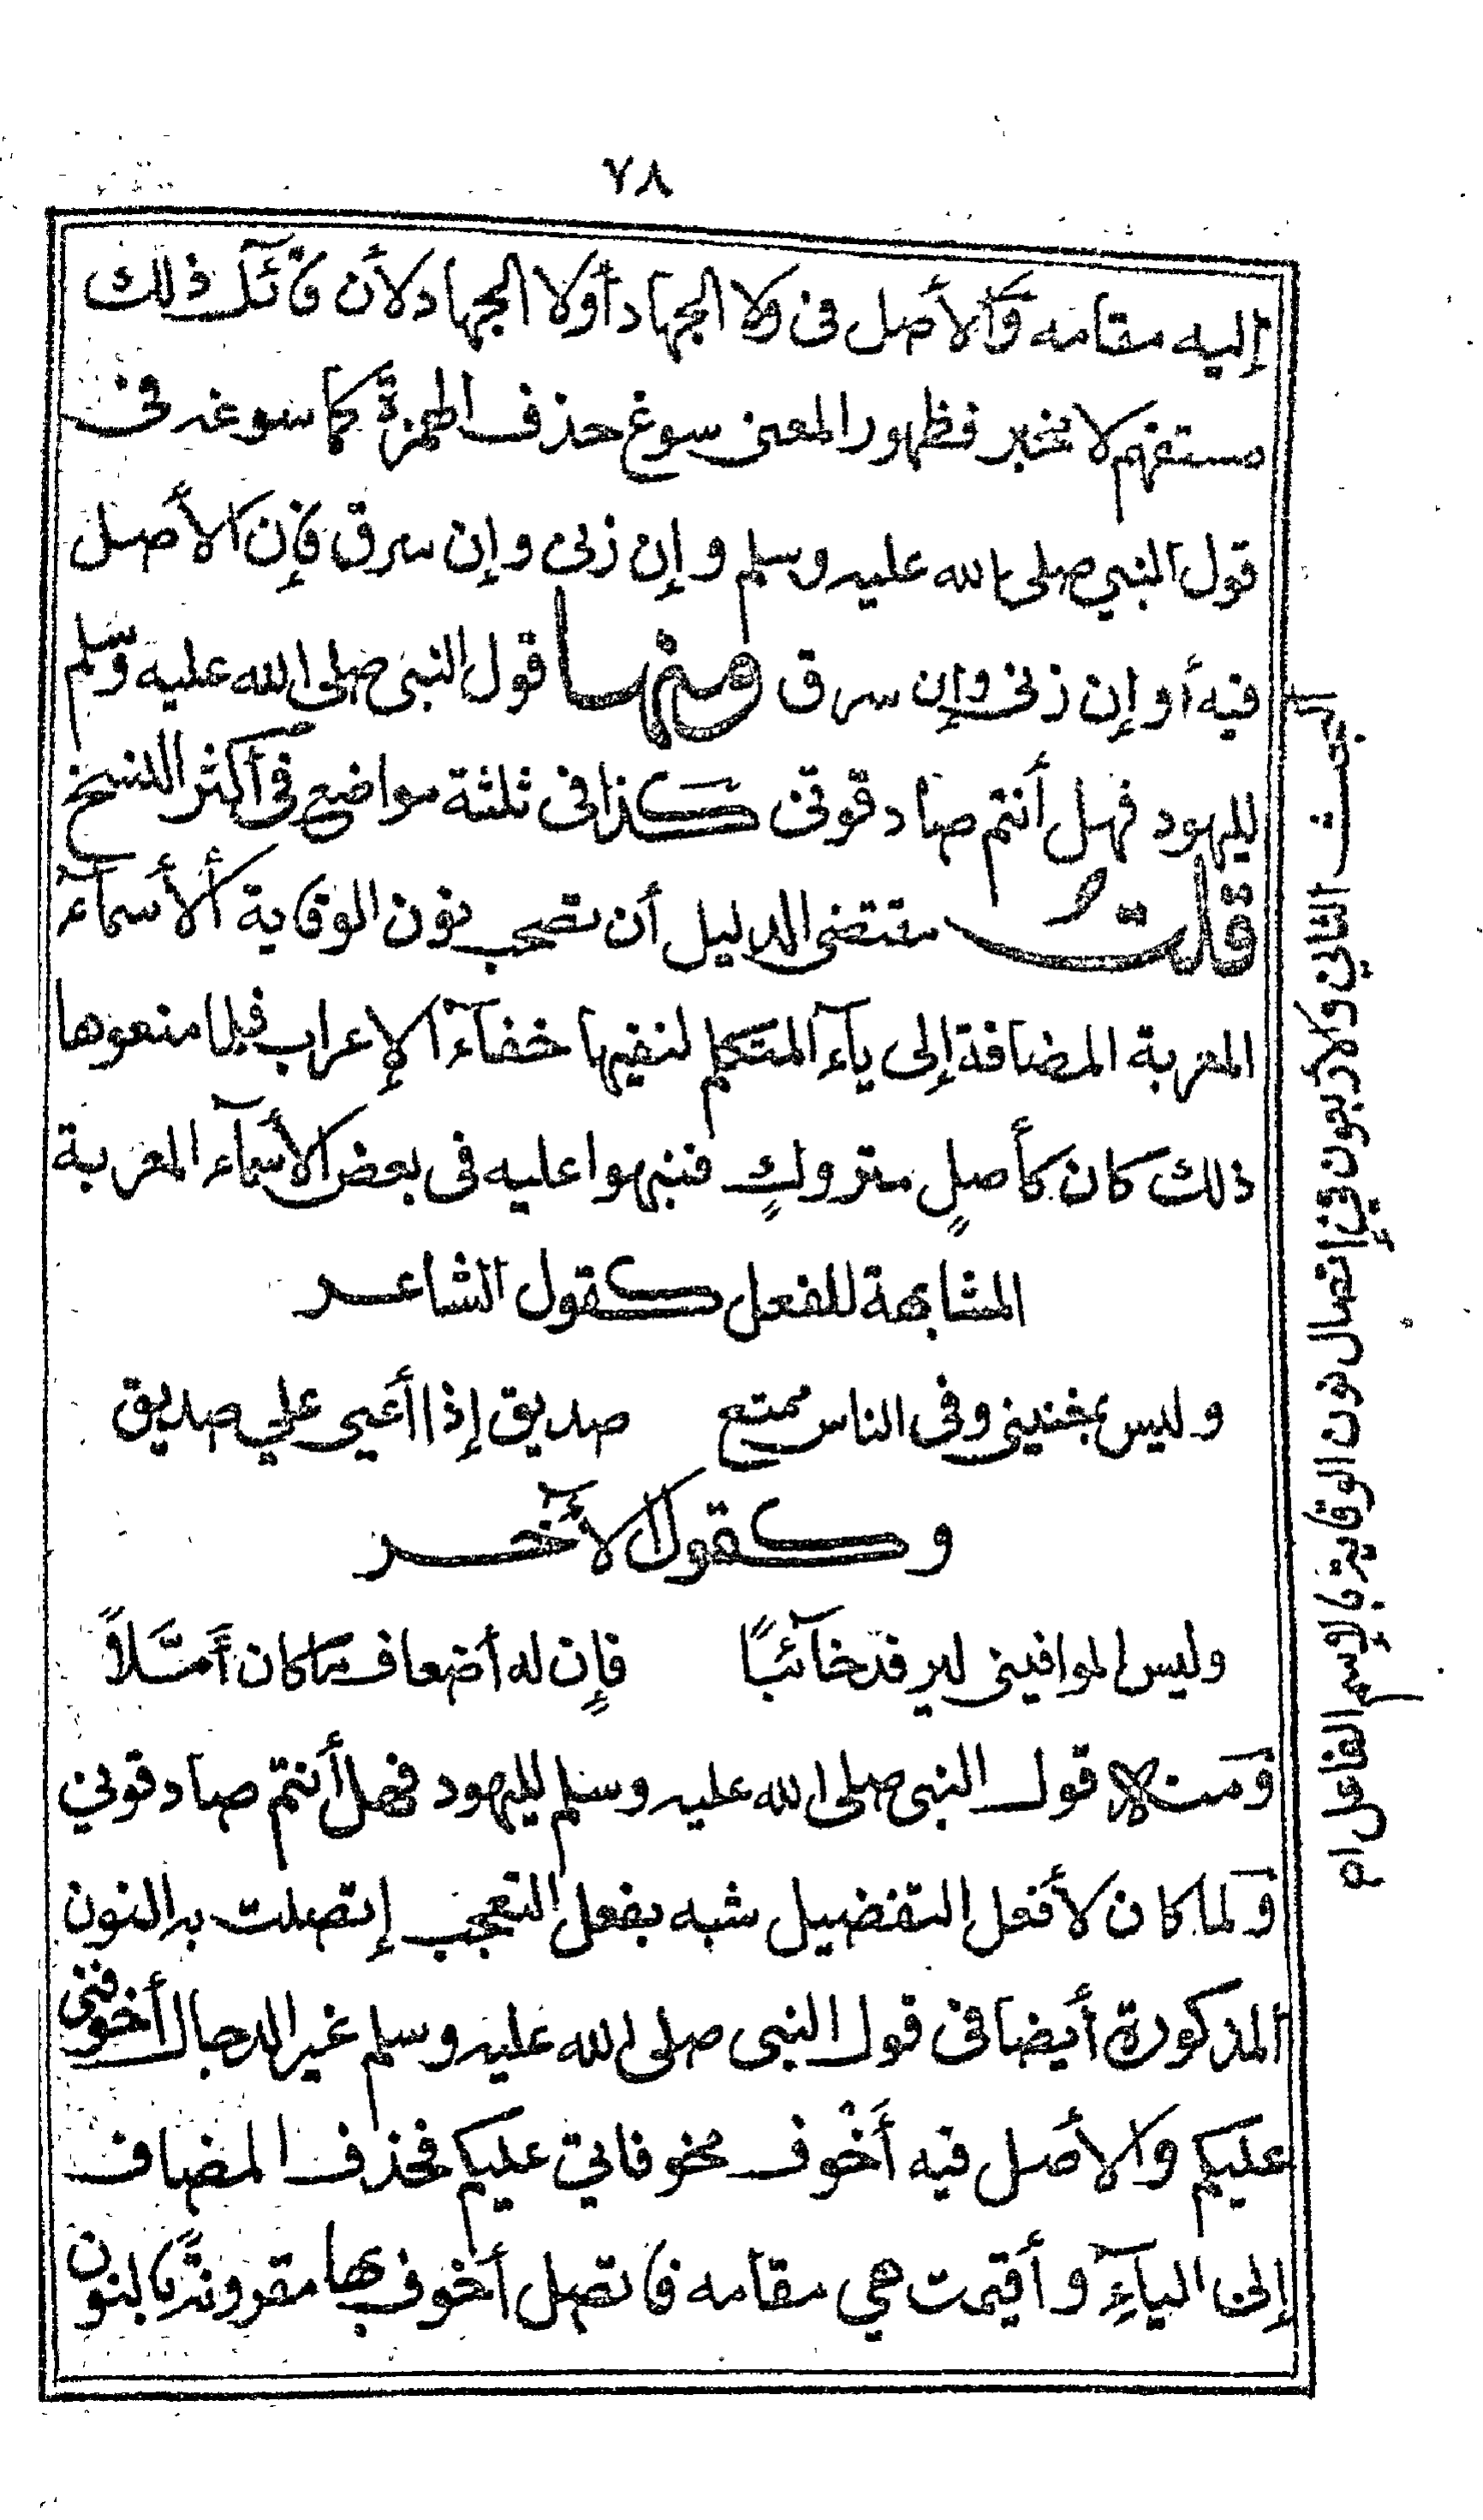 ٧٨
إليه مقامه وٱلأصل فى ولا الجهاد أولا الجهاد لأن قائل ذلك
مستفهم لا مخبر فظهور المعنى سوغ حذف الهمزة كما سوغه فى
قول النبي صلى الله عليه وسلم وإن زنى وإن سرق فإن الأصل
فيه أو إن زنى وإن سرق ومنها قول النبى صلى الله عليه وسلم
لليهود فهل أنتم صادقونى كذا فى ثلثة مواضع فى أكثر النسخ
قلت مقتضى الدليل أن تصحب نون الوقاية ألأسمآء
المعربة المضافة إلى يآء المتكلم لنفيها خفآء الإعراب فلما منعوها
ذلك كان كأصلٍ متروكٍ فنبهوا عليه فى بعض الأسمآء المعربة
المشابهة للفعل كقول الشاعر
وليس بمجنينى وفى الناس ممتع صديق إذا أعيى علي صديق
وكقول الأٓخر
وليس الموافينى ليرفد خآئبًا فإن له أضعاف ما كان أمّلاً
ومنه قول النبى صلى الله عليه وسلم لليهود فهل أنتم صادقوني
ولما كان لأفعل التفضيل شبه بفعل التعجب إتصلت به النون
المذكورة أيضا فى قول النبى صلى الله عليه وسلم غير الدجال أخوفنى
عليكم والأصل فيه أخوف مخوفاتي عليكم فحذف المضاف
إلى اليآءِ وأقيمت هي مقامه فاتصل أخوف بها مقرونة بالنون
البحث الثاني والأربعون في إتصال نون الوقاية بإسم الفاعل ام